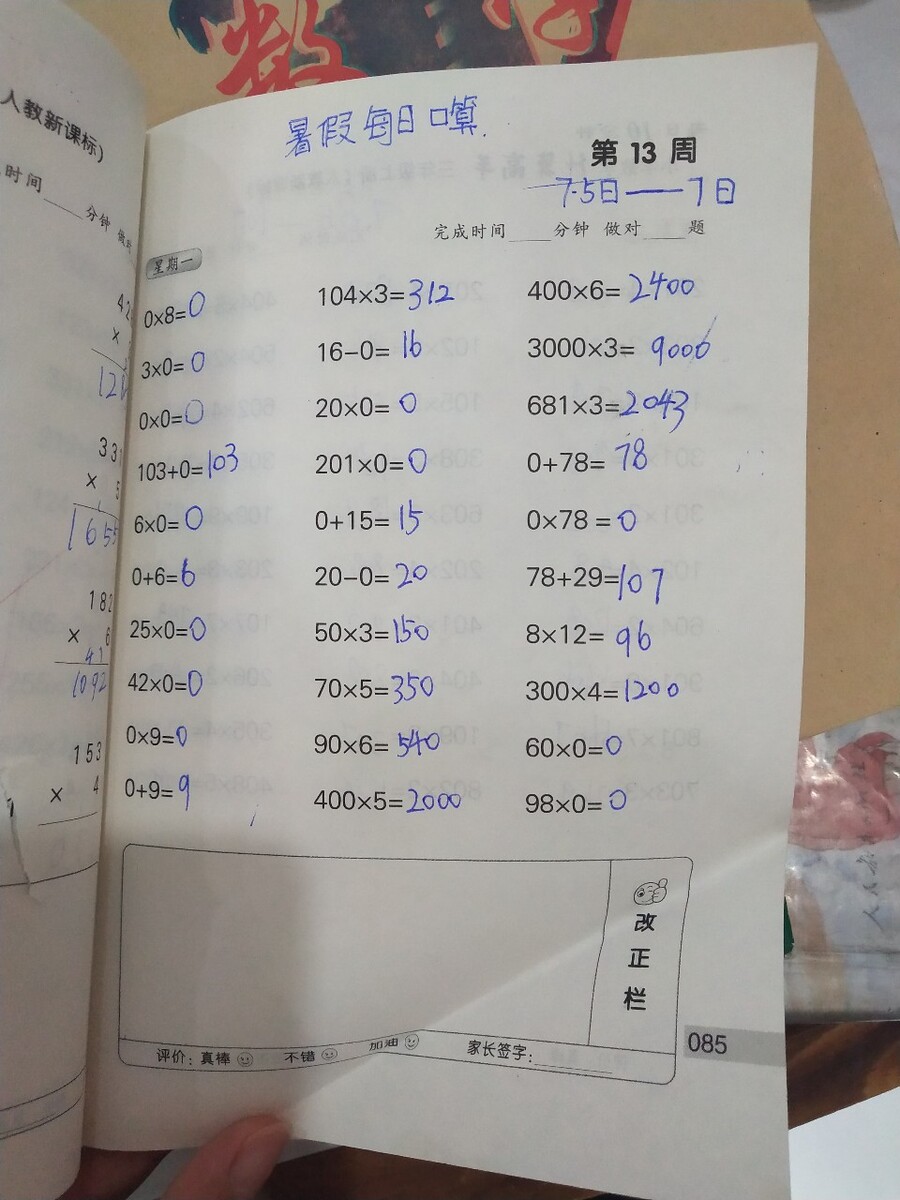 数学
人教新课标)
时间____分钟 做对
暑假每日口算
第 13 周
7.5日——7日
完成时间____分钟 做对____题
星期一
0×8=0 104×3=312 400×6=2400
3×0=0 16−0=16 3000×3=9000
0×0=0 20×0=0 681×3=2043
103+0=103 201×0=0 0+78=78
6×0=0 0+15=15 0×78=0
0+6=6 20−0=20 78+29=107
25×0=0 50×3=150 8×12=96
42×0=0 70×5=350 300×4=1200
0×9=0 90×6=540 60×0=0
0+9=9 400×5=2000 98×0=0
×
331
× 5
1655
182
× 6
41
1092
153
× 4
改正栏
评价：真棒 不错 加油 家长签字：________
085